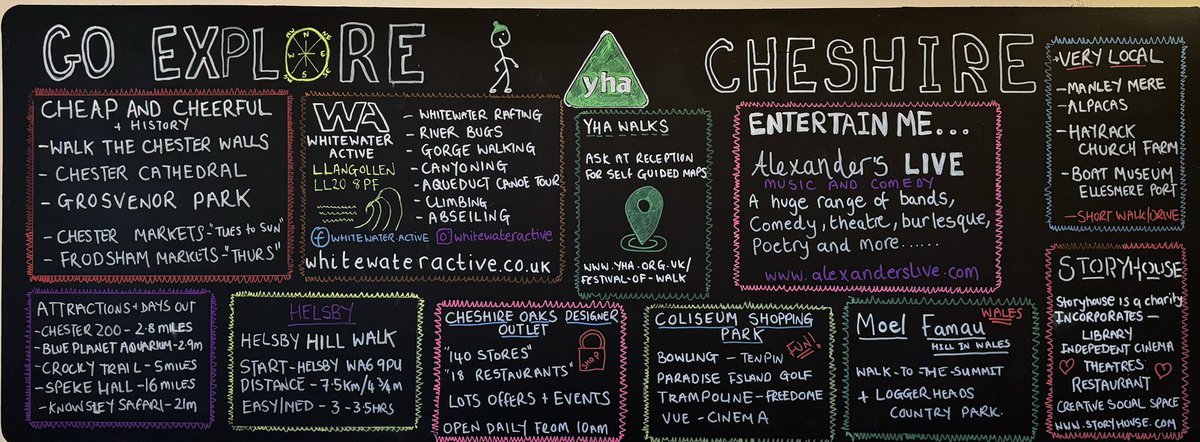 GO EXPLORE
N
NE
E
SE
S
SW
W
NW
yha
CHESHIRE
CHEAP AND CHEERFUL
+ HISTORY
- WALK THE CHESTER WALLS
- CHESTER CATHEDRAL
- GROSVENOR PARK
- CHESTER MARKETS - "TUES to SUN"
- FRODSHAM MARKETS - "THURS"
WA
WHITEWATER
ACTIVE
LLANGOLLEN
LL20 8PF
- WHITEWATER RAFTING
- RIVER BUGS
- GORGE WALKING
- CANYONING
- AQUEDUCT CANOE TOUR
- CLIMBING
- ABSEILING
f WHITEWATER.ACTIVE whitewateractive
whitewateractive.co.uk
YHA WALKS
ASK AT RECEPTION
FOR SELF GUIDED MAPS
WWW.YHA.ORG.UK/
FESTIVAL-OF-WALK
ENTERTAIN ME...
Alexander's LIVE
MUSIC AND COMEDY
A huge range of bands,
Comedy, theatre, burlesque,
Poetry and more......
www.alexanderslive.com
VERY LOCAL
- MANLEY MERE
- ALPACAS
- HAYRACK
CHURCH FARM
- BOAT MUSEUM
ELLESMERE PORT
- SHORT WALK/DRIVE
ATTRACTIONS + DAYS OUT
- CHESTER ZOO - 2.8 MILES
- BLUE PLANET AQUARIUM - 2.9m
- CROCKY TRAIL - 5 MILES
- SPEKE HALL - 16 MILES
- KNOWSLEY SAFARI - 21m
HELSBY
HELSBY HILL WALK
START - HELSBY WA6 9PU
DISTANCE - 7.5KM/4 3/4m
EASY/MED - 3 - 3.5HRS
CHESHIRE OAKS DESIGNER
OUTLET
"140 STORES"
"18 RESTAURANTS"
SHOP
LOTS OFFERS + EVENTS
OPEN DAILY FROM 10am
COLISEUM SHOPPING
PARK
FUN!
BOWLING - TENPIN
PARADISE ISLAND GOLF
TRAMPOLINE - FREEDOME
VUE - CINEMA
Moel Famau
WALES
HILL IN WALES
WALK-TO-THE-SUMMIT
+ LOGGERHEADS
COUNTRY PARK.
STORYHOUSE
Storyhouse is a charity
INCORPORATES -
LIBRARY
INDEPEDENT CINEMA
THEATRES
RESTAURANT
CREATIVE SOCIAL SPACE
WWW.STORYHOUSE.COM